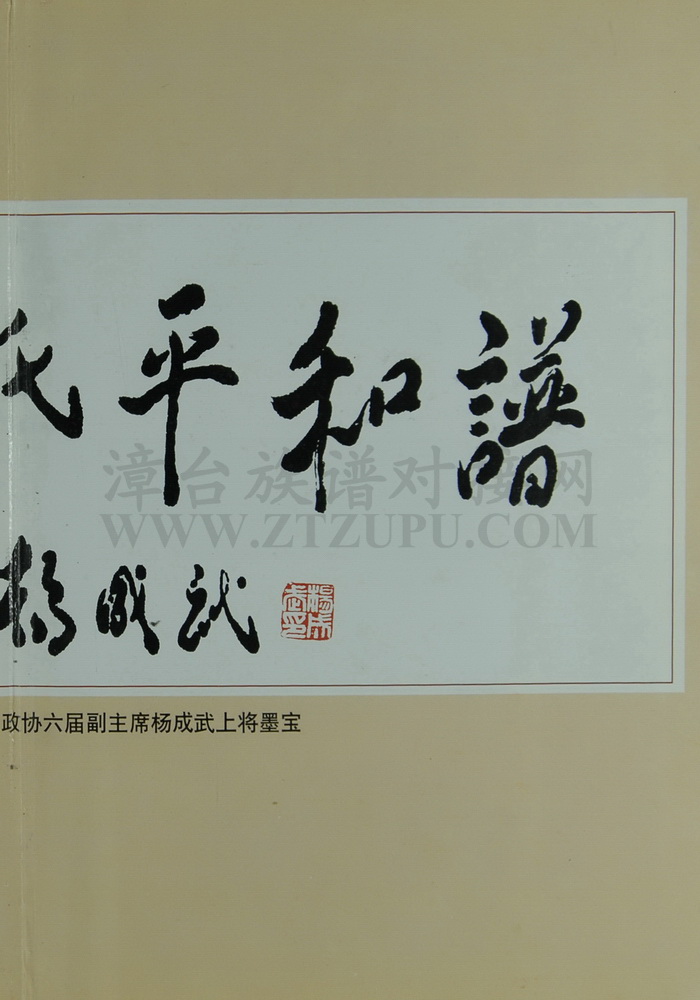 氏平和譜
楊成武
楊成武印
漳台族谱对接网
WWW.ZTZUPU.COM
政协六届副主席杨成武上将墨宝